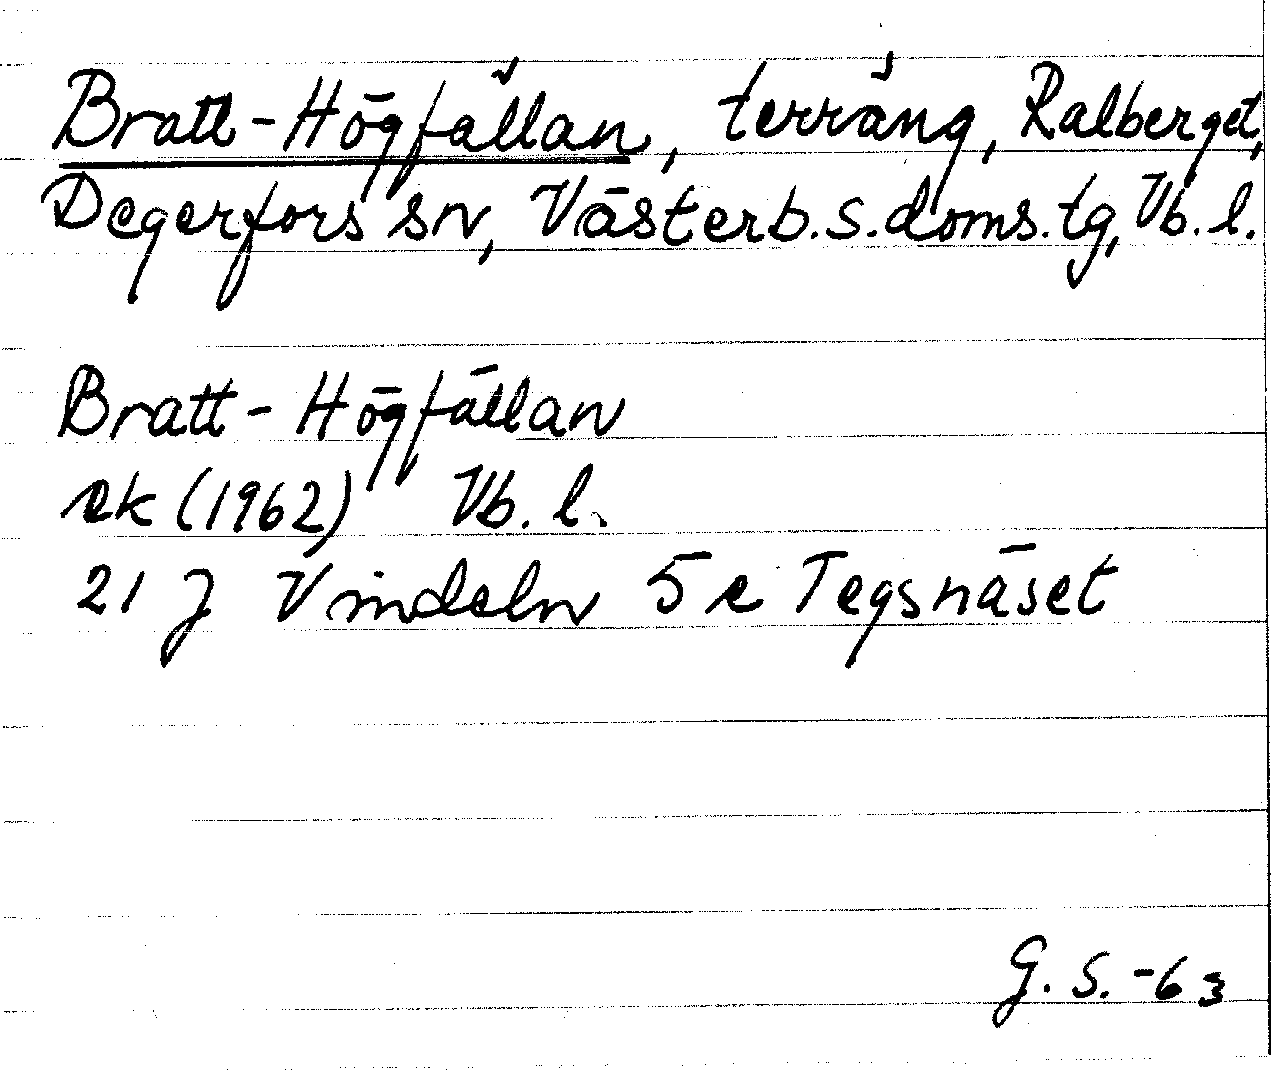 Bratt-Högfällan, terräng, Ralberget,
Degerfors sn, Västerb.s.doms.tg, Vb.l.
Bratt-Högfällan
ek (1962) Vb.l.
21 J Vindeln 5 e Tegsnäset
G.S.-63